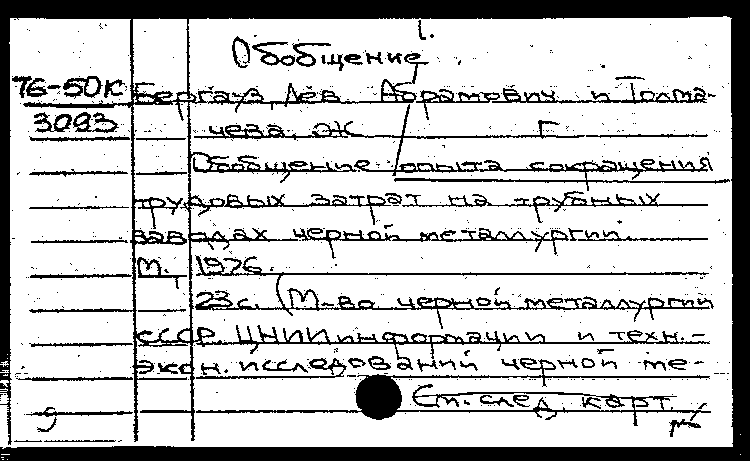 1.
Обобщение
76-50К Бергауз, Лев Абрамович и Толма-
3093 чева, ЭЖ Г
Обобщение опыта сокращения
трудовых затрат на трубных
заводах черной металлургии.
М., 1976.
23 с. (М-во черной металлургии
СССР. ЦНИИинформации и техн.-
экон. исследований черной ме-
См. след. карт.
9